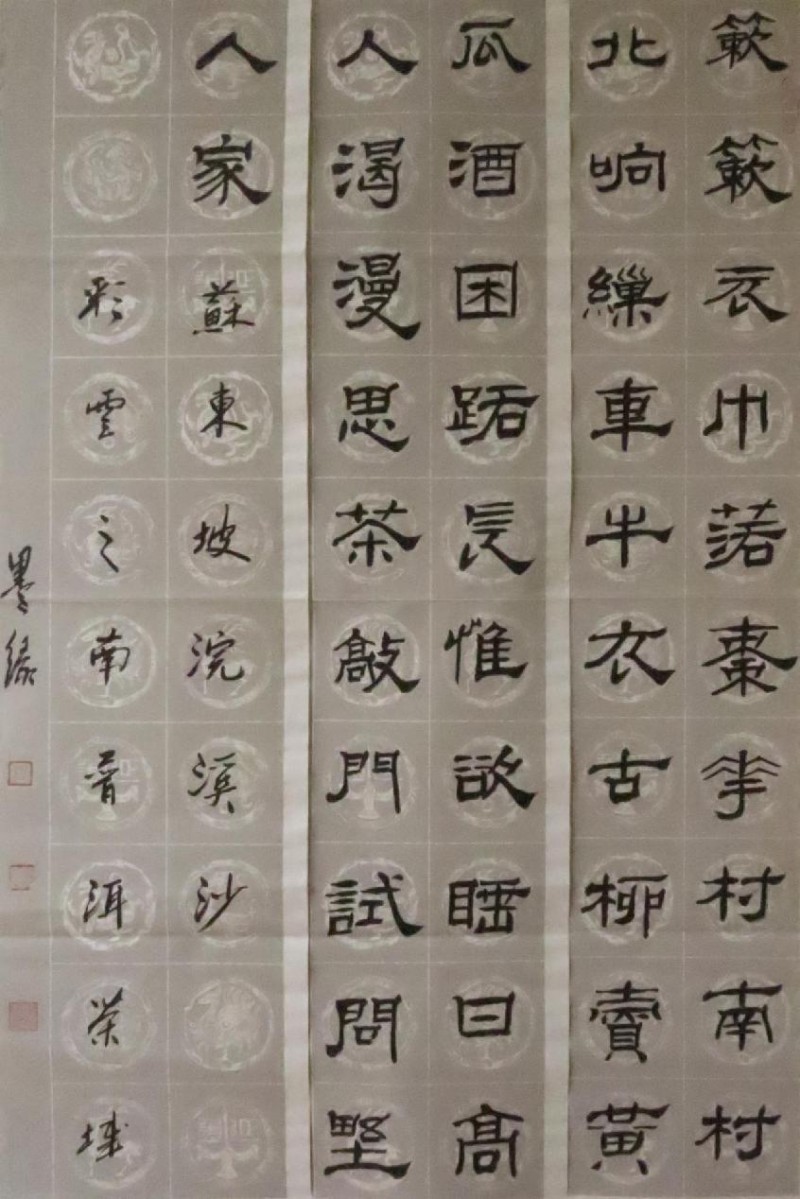 簌簌衣巾落棗花村南村
北响繅車牛衣古柳賣黃
瓜酒困路長惟欲睡日高
人渴漫思茶敲門試問野
人家蘇東坡浣溪沙
彩雲之南普洱茶城
墨缘